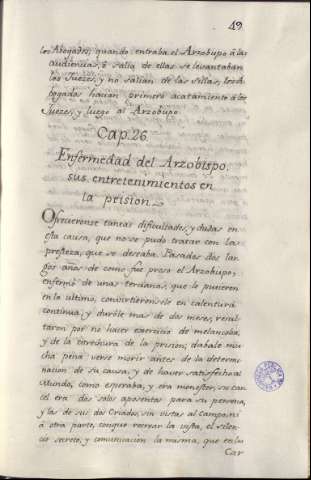 49
los Abogados; quando entraba el Arzobispo à las
audiencias, ò salia de ellas se levantaban
los Juezes, y no salian de las sillas, los A-
bogados hacian primero acatamiento à los
Juezes, y luego al Arzobispo.
Cap. 26.
Enfermedad del Arzobispo,
sus entretenimientos en
la prision.
Ofrecieronse tantas dificultades, y dudas en
esta causa, que no se pudo tratar con la
presteza, que se deseaba. Pasados dos lar-
gos años de como fue preso el Arzobispo,
enfermò de unas tercianas, que le pusieron
en lo ultimo, convirtieronsele en calentura
continua, y duròle mas de dos meses, resul-
taron por no hacer exercicio de melancolia,
y de la estrechura de la prision; dabale mu-
cha pena verse morir antes de la determi-
nacion de su causa, y de haver satisfecho al
Mundo, como esperaba, y era menester, su car-
cel era dos solos aposentos para su persona,
y las de sus dos Criados, sin vistas al campo ni
à otra parte, conque recrear la vista, el silen-
cio secreto, y comunicacion la misma, que en las
Car